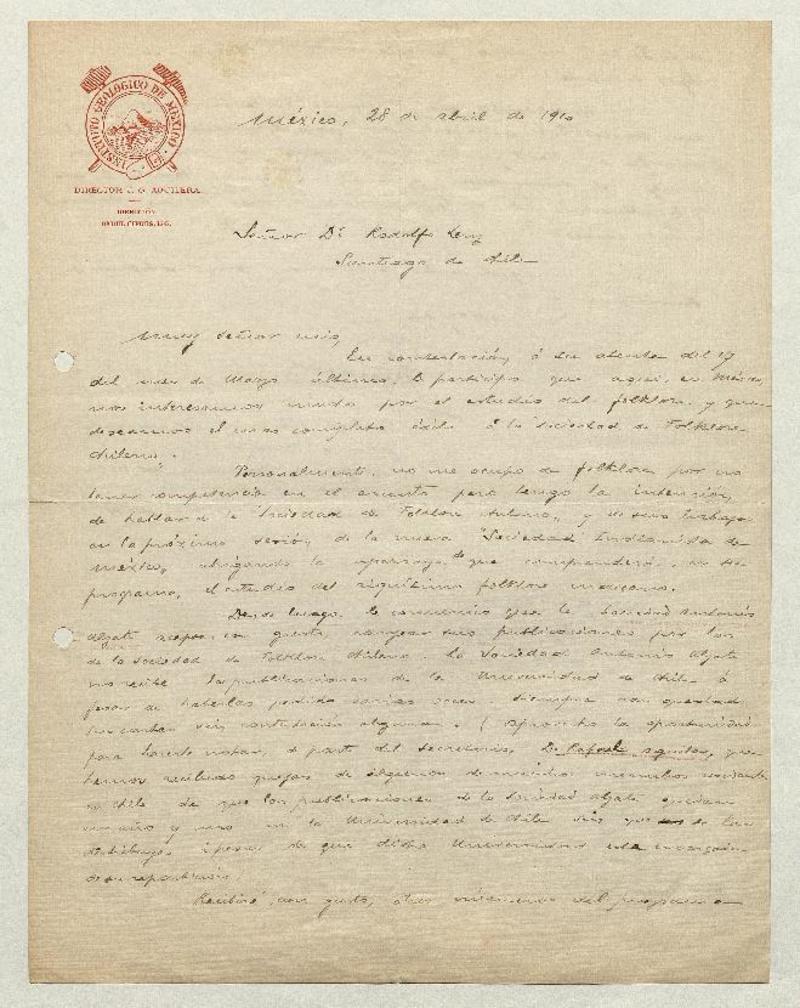 INSTITUTO GEOLÓGICO DE MÉXICO
DIRECTOR J. G. AGUILERA
DIRECCIÓN
México, 28 de abril de 1910
Señor Dr Rodolfo Lenz
Santiago de Chile
Muy señor mío,
En contestación á su atenta del 17
del mes de Marzo último, le participo que aquí, en México,
nos interesamos mucho por el estudio del folklore y que
deseamos el mas completo éxito á la "Sociedad de Folklore
Chileno".
Personalmente, no me ocupo de folklore por no
tener competencia en el asunto pero tengo la intención
de hablar de la Sociedad de Folklore chileno, y de sus trabajos
en la próxima sesión de la nueva "Sociedad Indianista de
México", abrigando la esperanza de que comprenderá, en su
programa, el estudio del riquísimo folklore mexicano.
Desde luego le comunico que la Sociedad Antonio
Alzate acepta con gusto canjear sus publicaciones por las
de la Sociedad de Folklore chileno. La Sociedad Antonio Alzate
no recibe las publicaciones de la Universidad de Chile á
pesar de haberlas pedido varias veces. Siempre han quedado
sus cartas sin contestación alguna. (Aprovecho la oportunidad
para hacerle notar, á parte del secretario, D. Rafael Aguilar, que
hemos recibido quejas de algunos de nuestros miembros residentes
en Chile de que las publicaciones de la Sociedad Alzate quedan
un año y mas en la Universidad de Chile sin que se las
distribuya, á pesar de que dicha Universidad está encargada
de su repartición.
Recibiré, con gusto, otros números del programa